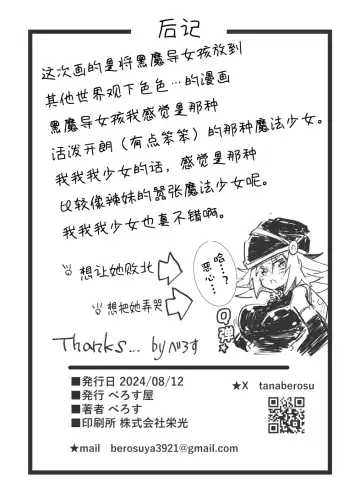 后记
这次画的是将黑魔导女孩放到
其他世界观下色色…的漫画
黑魔导女孩我感觉是那种
活泼开朗（有点笨笨）的那种魔法少女。
我我我少女的话，感觉是那种
比较像辣妹的嚣张魔法少女呢。
我我我少女也真不错啊。
想让她败北
哈…？
恶心…
想把她弄哭
Thanks... by べろす
■発行日 2024/08/12
■発行 べろす屋
■著者 べろす
■印刷所 株式会社栄光
★X tanaberosu
★mail berosuya3921@gmail.com